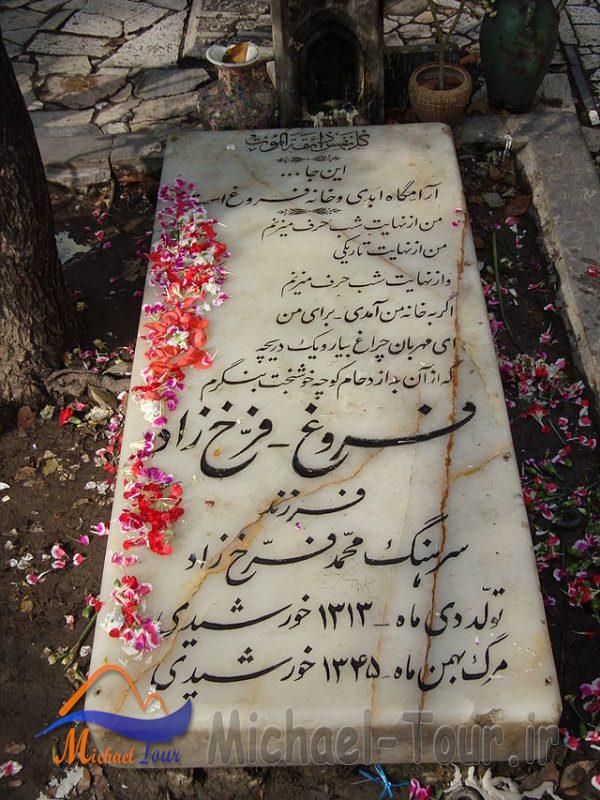 كل نفس ذائقة الموت
این جا ...
آرامگاه ابدی و خانه فروغ است
من از نهایت شب حرف میزنم
من از نهایت تاریکی
و از نهایت شب حرف میزنم
اگر به خانه من آمدی - برای من
ای مهربان چراغ بیار و یک دریچه
که از آن به ازدحام کوچه خوشبخت بنگرم
فروغ - فرّخ زاد
فرزند
سرهنگ محمّد فرّخ زاد
تولّد دی ماه - ۱۳۱۳ خورشیدی
مرگ بهمن ماه - ۱۳۴۵ خورشیدی
Michael Tour
Michael-Tour.ir